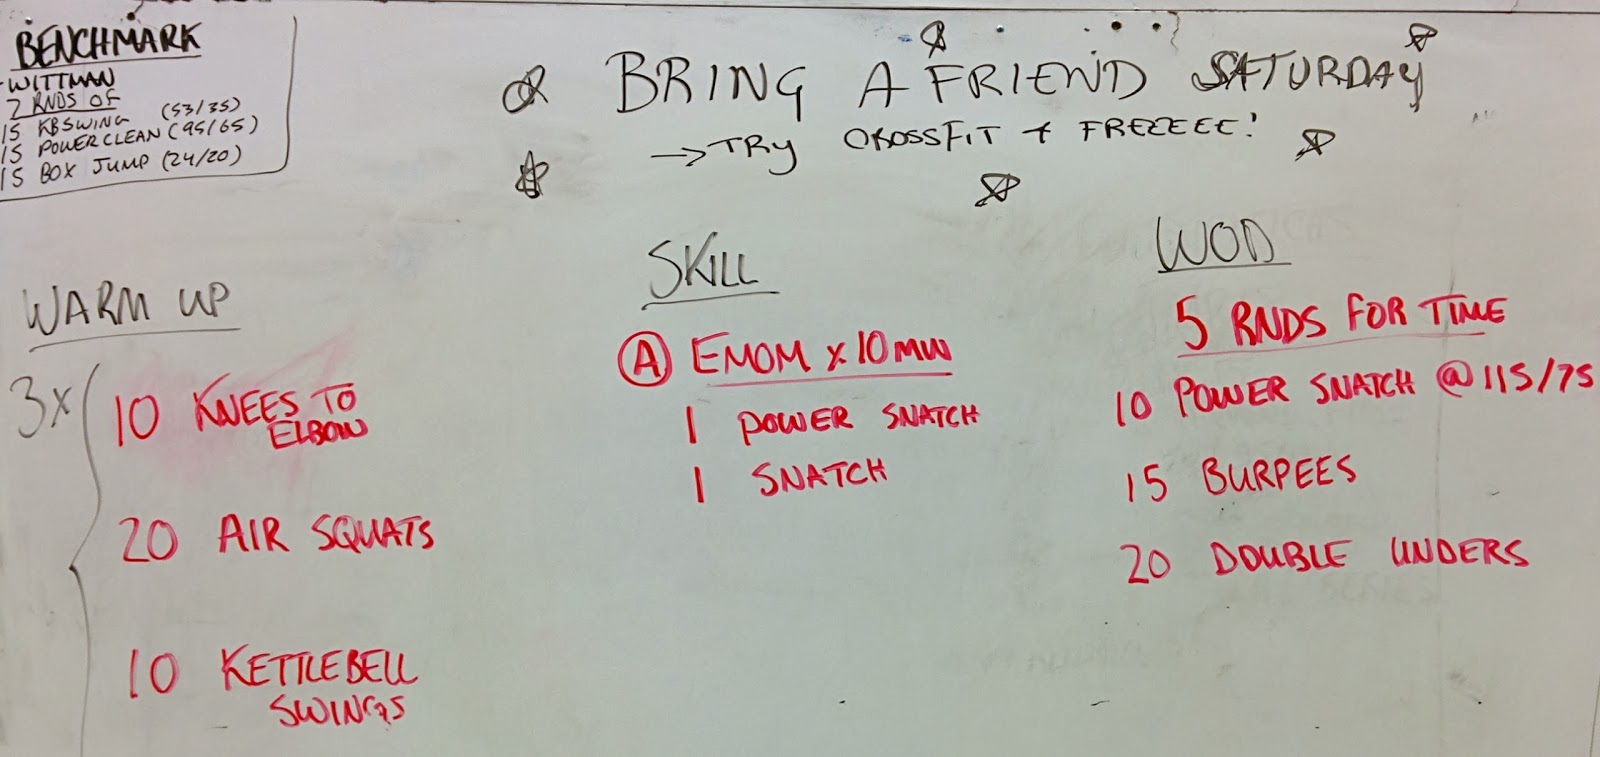 BENCHMARK
-WITTMAN
7 RNDS OF
15 KB SWING (53/35)
15 POWER CLEAN (95/65)
15 BOX JUMP (24/20)
BRING A FRIEND SATURDAY
→ TRY CROSSFIT + FREEEEE!
WARM UP
3x
10 KNEES TO
ELBOW
20 AIR SQUATS
10 KETTLEBELL
SWINGS
SKILL
A EMOM x 10 MIN
1 POWER SNATCH
1 SNATCH
WOD
5 RNDS FOR TIME
10 POWER SNATCH @ 115/75
15 BURPEES
20 DOUBLE UNDERS